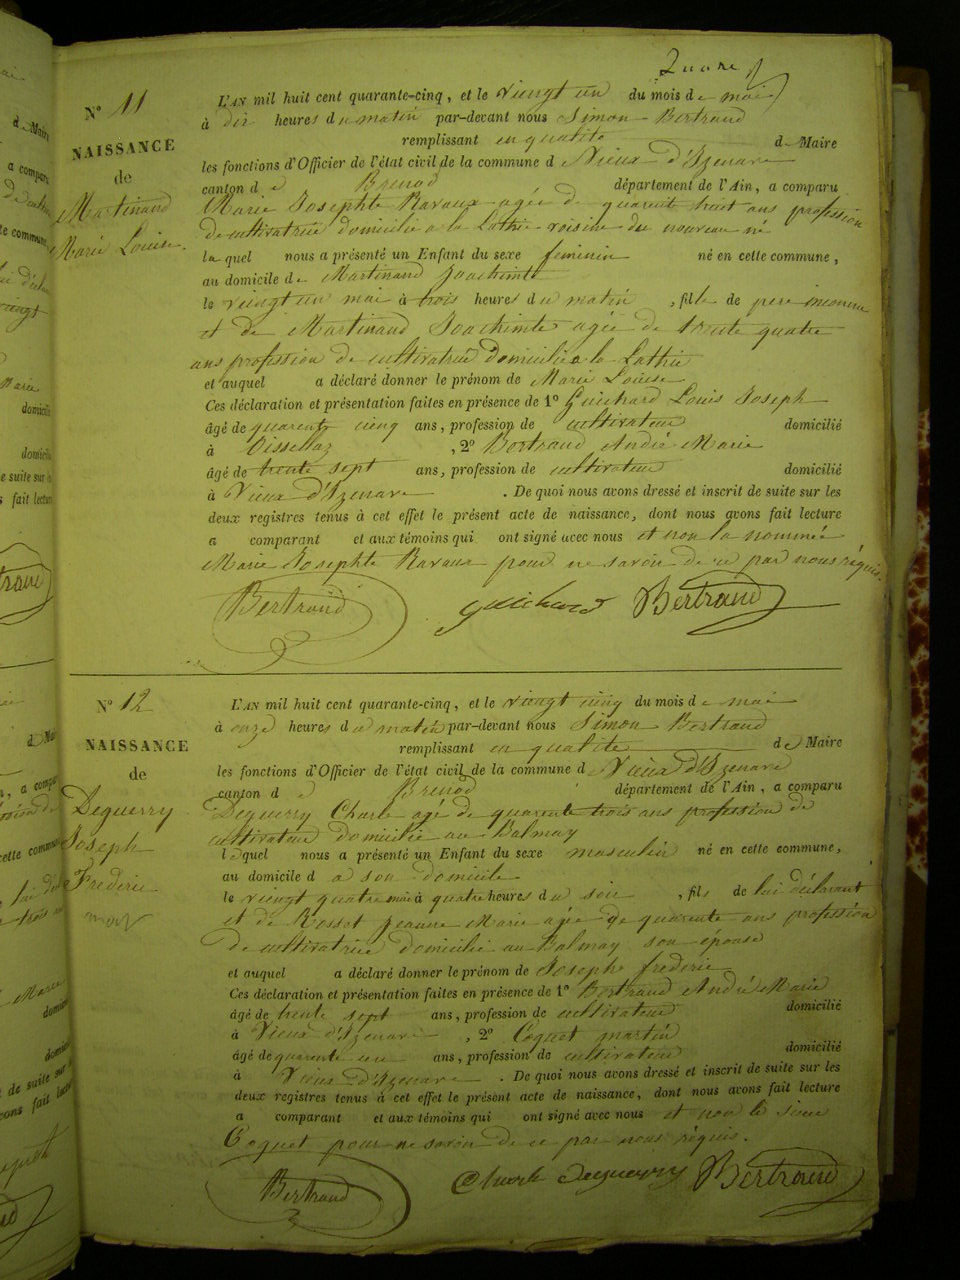 Quatre
N° 11
NAISSANCE
de
Martinand
Marie Louise
L'AN mil huit cent quarante-cinq, et le vingt un du mois de mai
à dix heures du matin par-devant nous Simon Bertrand
remplissant en qualité de Maire
les fonctions d'Officier de l'état civil de la commune d Vieux d'Izenave
canton d e Brenod département de l'Ain, a comparu
Marie Josephte Ravaux agée de quarente huit ans profession
de cultivatrice domicilié a la Lathie voisine du nouveau né
la quel nous a présenté un Enfant du sexe feminin né en cette commune,
au domicile de Martinand Joachimte
le vingt un mai à trois heures du matin, fille de pere inconnu
et de Martinand Joachimte agée de trente quatre
ans profession de cultivatrice domicilié a la Lathie
et auquel a déclaré donner le prénom de Marie Louise
Ces déclaration et présentation faites en présence de 1° Guichard Louis Joseph
âgé de quarente cinq ans, profession de cultivateur domicilié
à Oissellaz, 2° Bertrand André Marie
âgé de trente sept ans, profession de cultivateur domicilié
à Vieux d'Izenave. De quoi nous avons dressé et inscrit de suite sur les
deux registres tenus à cet effet le présent acte de naissance, dont nous avons fait lecture
a comparant et aux témoins qui ont signé avec nous et non la nommée
Marie Josephte Ravaux pour ne savoir de ce par nous réquis.
Bertrand Guichard Bertrand
N° 12
NAISSANCE
de
Deguerry
Joseph
Frederic
mort
L'AN mil huit cent quarante-cinq, et le vingt cinq du mois de mai
à onze heures du matin par-devant nous Simon Bertrand
remplissant en qualité de Maire
les fonctions d'Officier de l'état civil de la commune d Vieux d'Izenave
canton d e Brenod département de l'Ain, a comparu
Deguerry Charle agé de quarente trois ans profession de
cultivateur domicilié au Balmay
lequel nous a présenté un Enfant du sexe masculin né en cette commune,
au domicile d a son domicile
le vingt quatre mai à quatre heures du soir, fils de lui déclarant
et de Rosset Jeanne Marie agée de quarente ans profession
de cultivatrice domicilié au Balmay son épouse
et auquel a déclaré donner le prénom de Joseph frederic
Ces déclaration et présentation faites en présence de 1° Bertrand André Marie
âgé de trente sept ans, profession de cultivateur domicilié
à Vieux d'Izenave, 2° Coquet martin
âgé de quarente un ans, profession de cultivateur domicilié
à Vieux d'Izenave. De quoi nous avons dressé et inscrit de suite sur les
deux registres tenus à cet effet le présent acte de naissance, dont nous avons fait lecture
a comparant et aux témoins qui ont signé avec nous et non le sieur
Coquet pour ne savoir de ce par nous réquis.
Bertrand Charle deguerry Bertrand